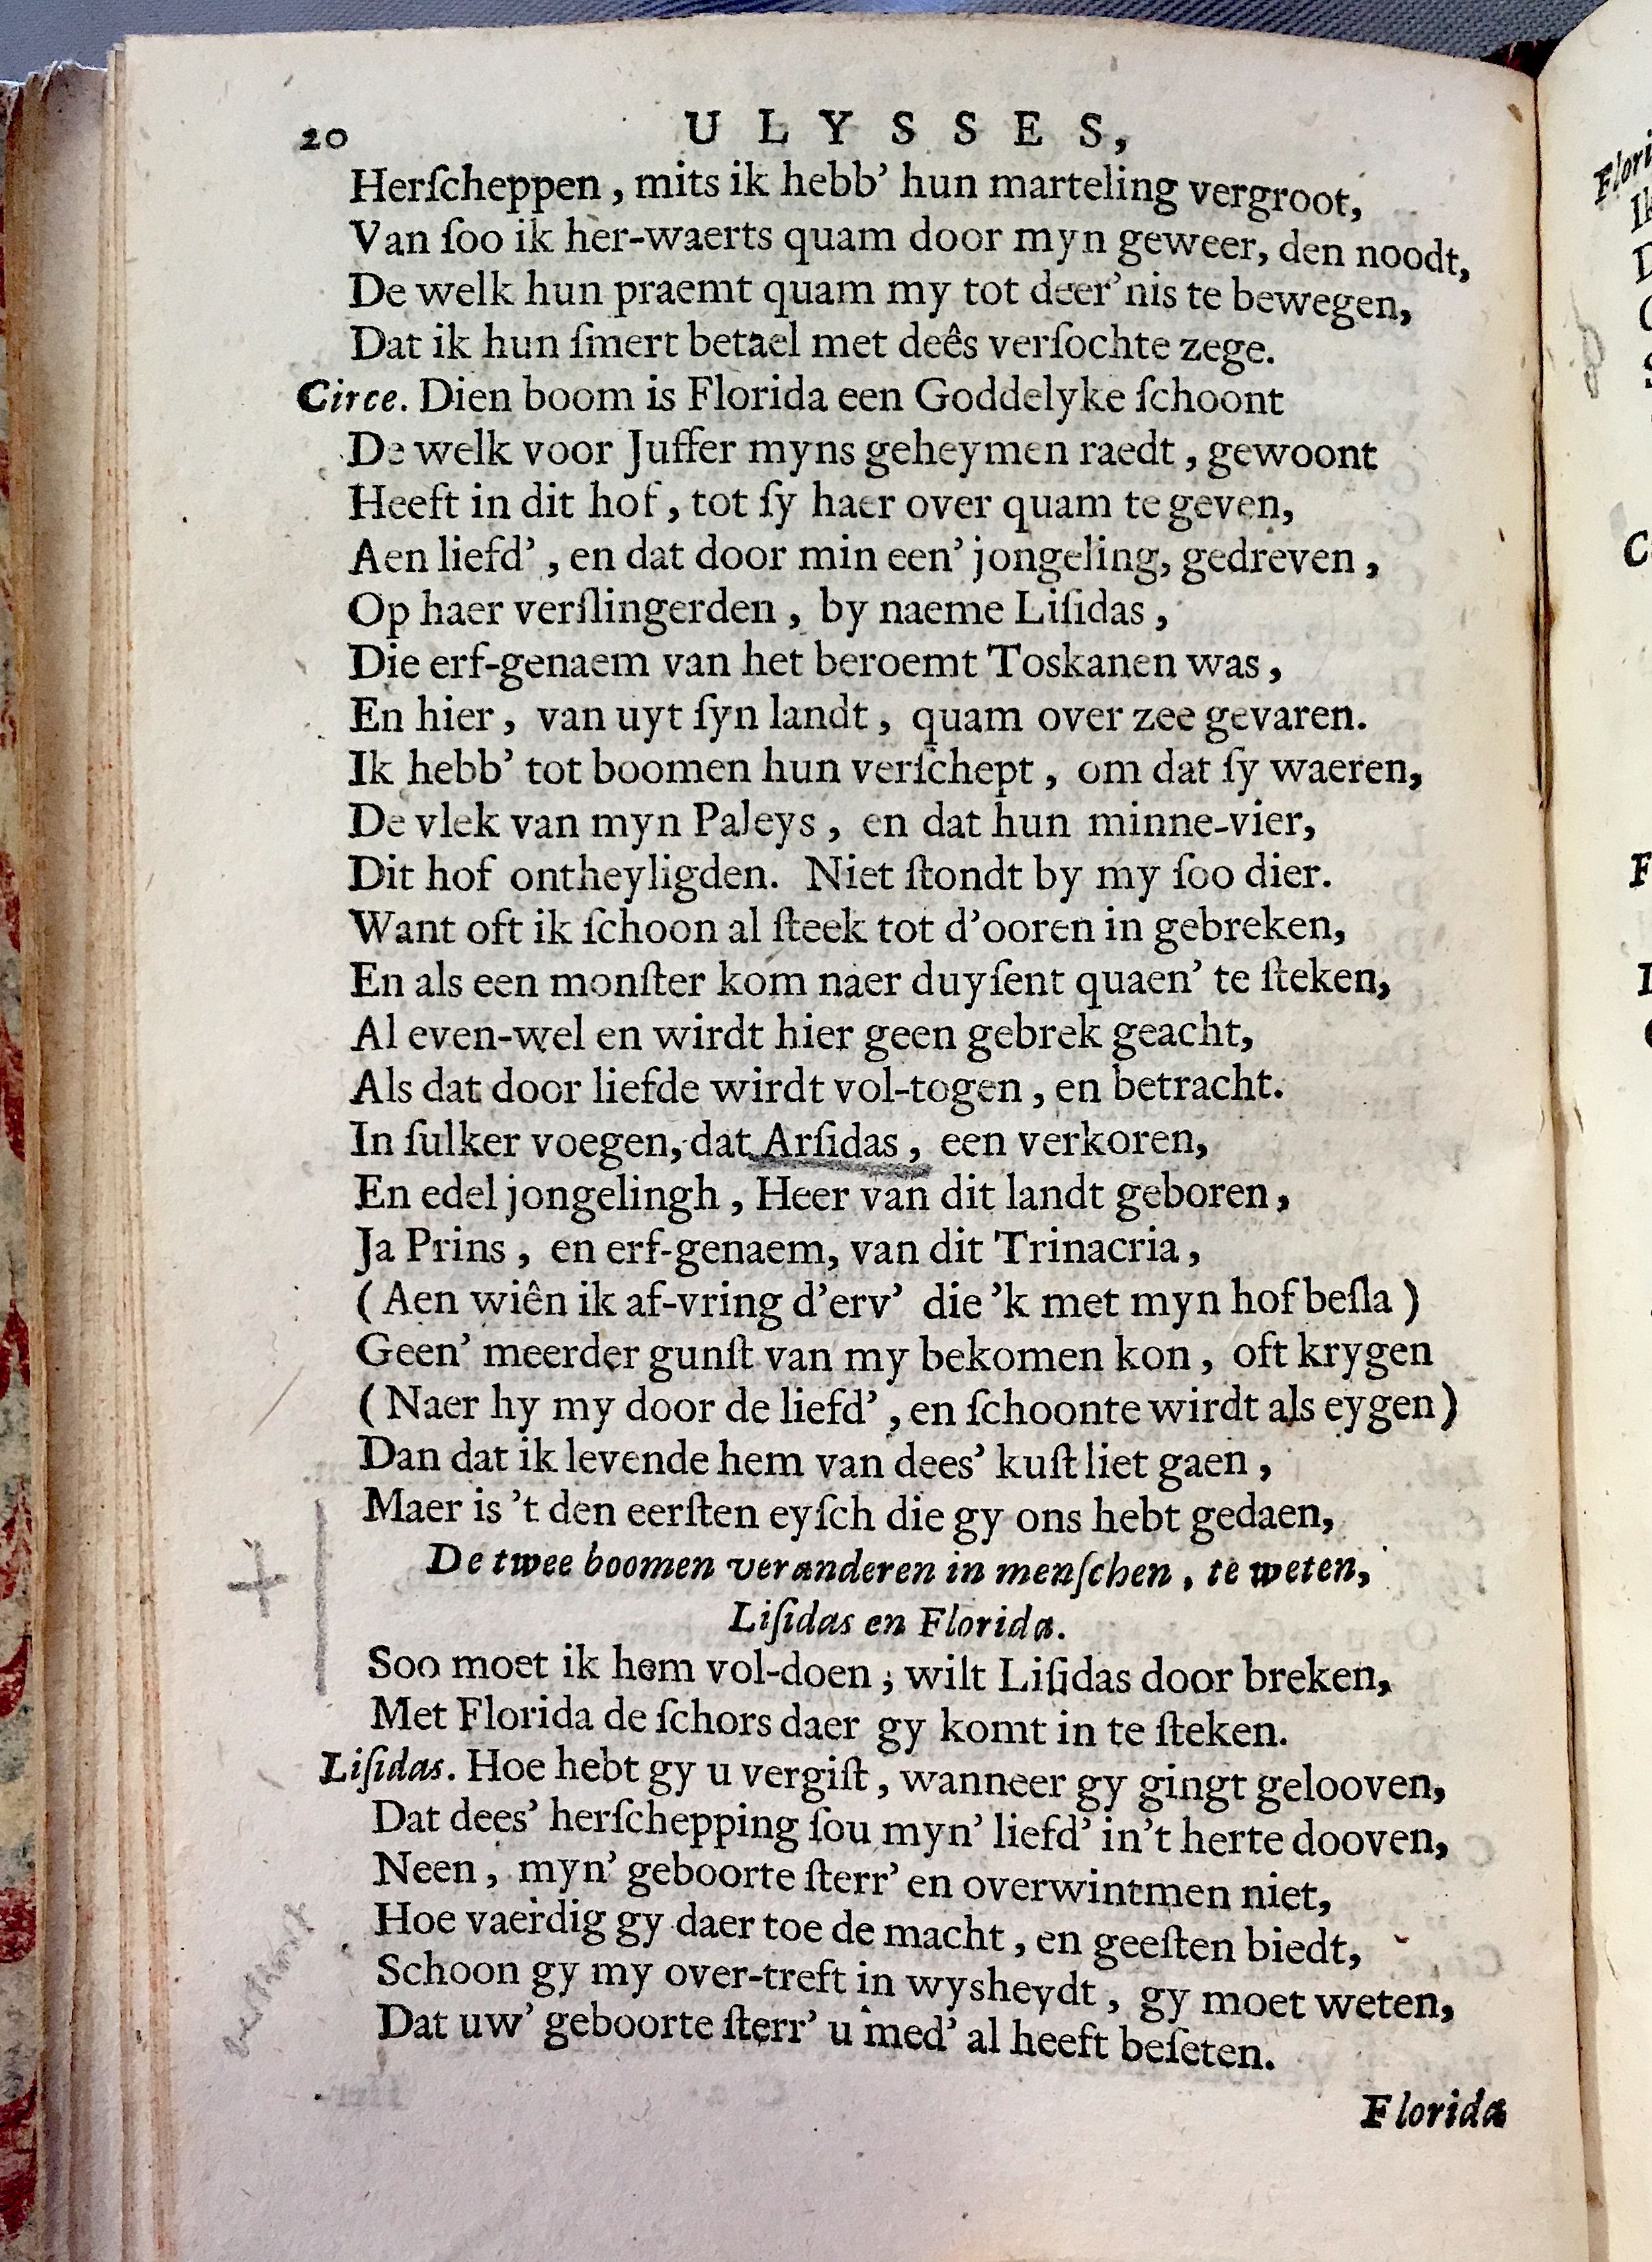 20 ULYSSES,
Herſcheppen, mits ik hebb' hun marteling vergroot,
Van ſoo ik her-waerts quam door myn geweer, den noodt,
De welk hun praemt quam my tot deer'nis te bewegen,
Dat ik hun ſmert betael met deês verſochte zege.
Circe. Dien boom is Florida een Goddelyke ſchoont
De welk voor Juffer myns geheymen raedt, gewoont
Heeft in dit hof, tot ſy haer over quam te geven,
Aen liefd', en dat door min een' jongeling, gedreven,
Op haer verſlingerden, by naeme Liſidas,
Die erf-genaem van het beroemt Toskanen was,
En hier, van uyt ſyn landt, quam over zee gevaren.
Ik hebb' tot boomen hun verſchept, om dat ſy waeren,
De vlek van myn Paleys, en dat hun minne-vier,
Dit hof ontheyligden. Niet ſtondt by my ſoo dier.
Want oft ik ſchoon al ſteek tot d'ooren in gebreken,
En als een monſter kom naer duyſent quaen' te ſteken,
Al even-wel en wirdt hier geen gebrek geacht,
Als dat door liefde wirdt vol-togen, en betracht.
In ſulker voegen, dat Arſidas, een verkoren,
En edel jongelingh, Heer van dit landt geboren,
Ja Prins, en erf-genaem, van dit Trinacria,
(Aen wiên ik af-vring d'erv' die 'k met myn hof beſla)
Geen' meerder gunſt van my bekomen kon, oft krygen
(Naer hy my door de liefd', en ſchoonte wirdt als eygen)
Dan dat ik levende hem van dees' kuſt liet gaen,
Maer is 't den eerſten eyſch die gy ons hebt gedaen,
De twee boomen veranderen in menſchen, te weten,
Liſidas en Florida.
Soo moet ik hem vol-doen; wilt Liſidas door breken,
Met Florida de ſchors daer gy komt in te ſteken.
Liſidas. Hoe hebt gy u vergiſt, wanneer gy gingt gelooven,
Dat dees' herſchepping ſou myn' liefd' in't herte dooven,
Neen, myn' geboorte ſterr' en overwintmen niet,
Hoe vaerdig gy daer toe de macht, en geeſten biedt,
Schoon gy my over-treft in wysheydt, gy moet weten,
Dat uw' geboorte ſterr' u med' al heeft beſeten.
Florida